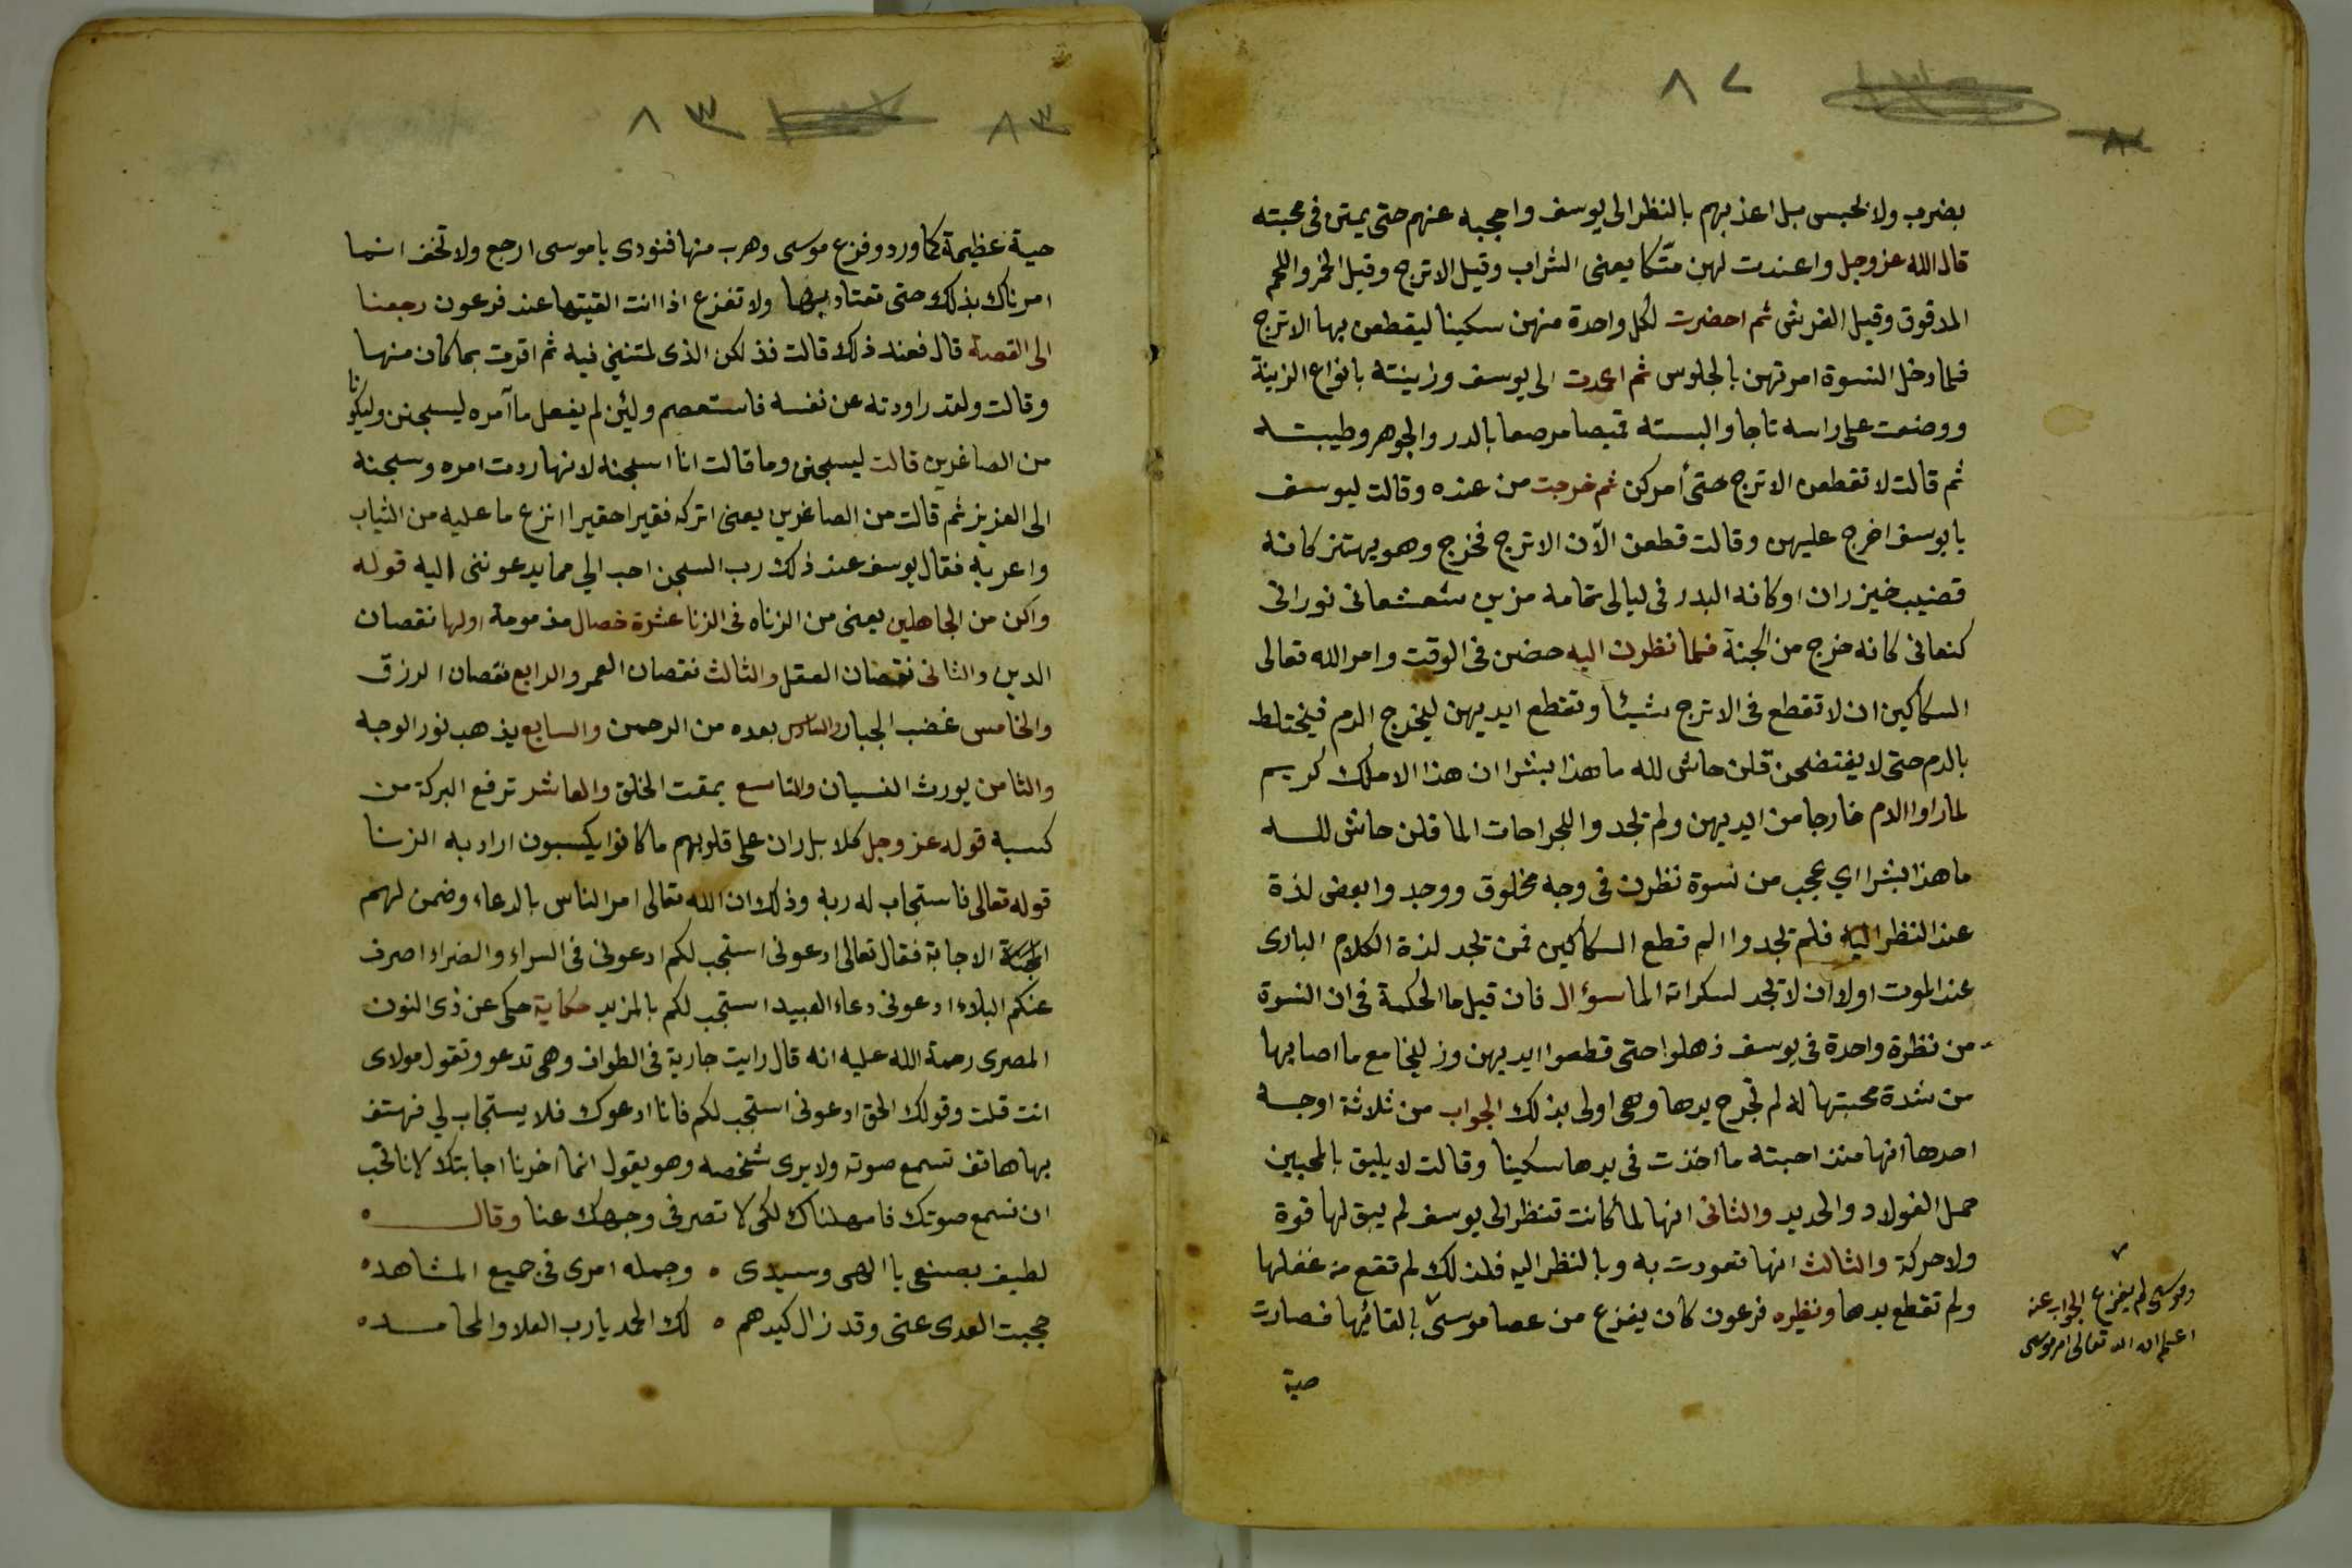 ٨٢
بضرب ولا بحبس بل اعذبهم بالنظر الى يوسف واحجبه عنهم حتى يمتن فى محبته
قال الله عز وجل واعتدت لهن متكا يعنى الشراب وقيل الاترج وقيل الخمر واللحم
المدقوق وقيل الفرش ثم احضرت لكل واحدة منهن سكينا ليقطعن بها الاترج
فلما دخل النسوة امرتهن بالجلوس ثم اعدت الى يوسف وزينته بانواع الزينة
ووضعت على راسه تاجا والبسته قميصا مرصعا بالدر والجوهر وطيبته
ثم قالت لا تقطعن الاترج حتى أمركن ثم خرجت من عنده وقالت ليوسف
يا يوسف اخرج عليهن وقالت قطعن الآن الاترج فخرج وهو يهتز كانه
قضيب خيزران او كانه البدر فى ليالى تمامه مزين شعشعانى نورانى
كنعانى كانه خرج من الجنة فلما نظرن اليه حضن فى الوقت وامر الله تعالى
السكاكين ان لا تقطع فى الاترج شيئا وتقطع ايديهن ليخرج الدم فيختلط
بالدم حتى لا يفتضحن قلن حاش لله ما هذا بشرا ان هذا الا ملك كريم
لما راوا الدم خارجا من ايديهن ولم تجدوا للجراحات الما قلن حاش لله
ما هذا بشرا اي عجب من نسوة نظرن فى وجه مخلوق ووجدوا بعض لذة
عند النظر اليه فلم تجدوا الم قطع السكاكين فمن تجد لذة الكلام البارى
عند الموت اولا ان لا تجد لسكراته الما سؤال فان قيل ما الحكمة فى ان النسوة
من نظرة واحدة فى يوسف ذهلوا حتى قطعوا ايديهن وزليخا مع ما اصابها
من شدة محبتها له لم تجرح يدها وهى اولى بذلك الجواب من ثلاثة اوجه
احدها انها منذ احبته ما اخذت فى يدها سكينا وقالت لا يليق بالمحبين
حمل الفولاد والحديد والثانى انها لما كانت تنظر الى يوسف لم يبق لها قوة
ولا حركة والثالث انها تعودت به وبالنظر اليه فلذلك لم تقع من غفلها
ولم تقطع يدها ونظيره فرعون كان يفزع من عصا موسى بالقائها فصارت
وموسى لم يفزع الجواب عنه
اعلم ان الله تعالى امر موسى
حية
٨٣
٨٣
حية عظيمة كما ورد وفزع موسى وهرب منها فنودى يا موسى ارجع ولا تخف انما
امرناك بذلك حتى تعتاد بها ولا تفزع اذا انت القيتها عند فرعون رجعنا
الى القصة قال فعند ذلك قالت فذلكن الذى لمتننى فيه ثم اقرت بما كان منها
وقالت ولقد راودته عن نفسه فاستعصم ولئن لم يفعل ما آمره ليسجنن وليكونا
من الصاغرين قالت ليسجنن وما قالت انا اسجنه لانها ردت امره وسجنه
الى العزيز ثم قالت من الصاغرين يعنى اتركه فقيرا حقيرا انزع ما عليه من الثياب
واعريه فقال يوسف عند ذلك رب السجن احب الي مما يدعوننى اليه قوله
واكن من الجاهلين يعنى من الزناه فى الزنا عشرة خصال مذمومة اولها نقصان
الدين والثانى نقصان العقل والثالث نقصان العمر والرابع نقصان الرزق
والخامس غضب الجبار والسادس بعده من الرحمن والسابع يذهب نور الوجه
والثامن يورث النسيان والتاسع يمقت الخلق والعاشر ترفع البركة من
كسبه قوله عز وجل كلا بل ران على قلوبهم ما كانوا يكسبون اراد به الزنا
قوله تعالى فاستجاب له ربه وذلك ان الله تعالى امر الناس بالدعاء وضمن لهم
الاجابة فقال تعالى ادعونى استجب لكم ادعونى فى السراء والضراء اصرف
عنكم البلاء ادعونى دعاء العبيد استجب لكم بالمزيد حكاية حكى عن ذى النون
المصرى رحمة الله عليه انه قال رايت جارية فى الطواف وهى تدعو وتقول مولاى
انت قلت وقولك الحق ادعونى استجب لكم فانا ادعوك فلا يستجاب لي فهتف
بها هاتف تسمع صوته ولا يرى شخصه وهو يقول انما اخرنا اجابتك لانا نحب
ان نسمع صوتك فامهلناك لكى لا تصرفى وجهك عنا وقال
لطيف بصنعى يا الهى وسيدى ٥ وجمله امرى فى جميع المشاهد ٥
حجبت العدى عنى وقد زال كيدهم ٥ لك الحمد يا رب العلا والمحامد ٥